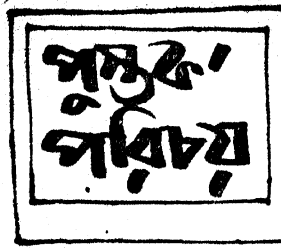 পুস্তক
পরিচয়